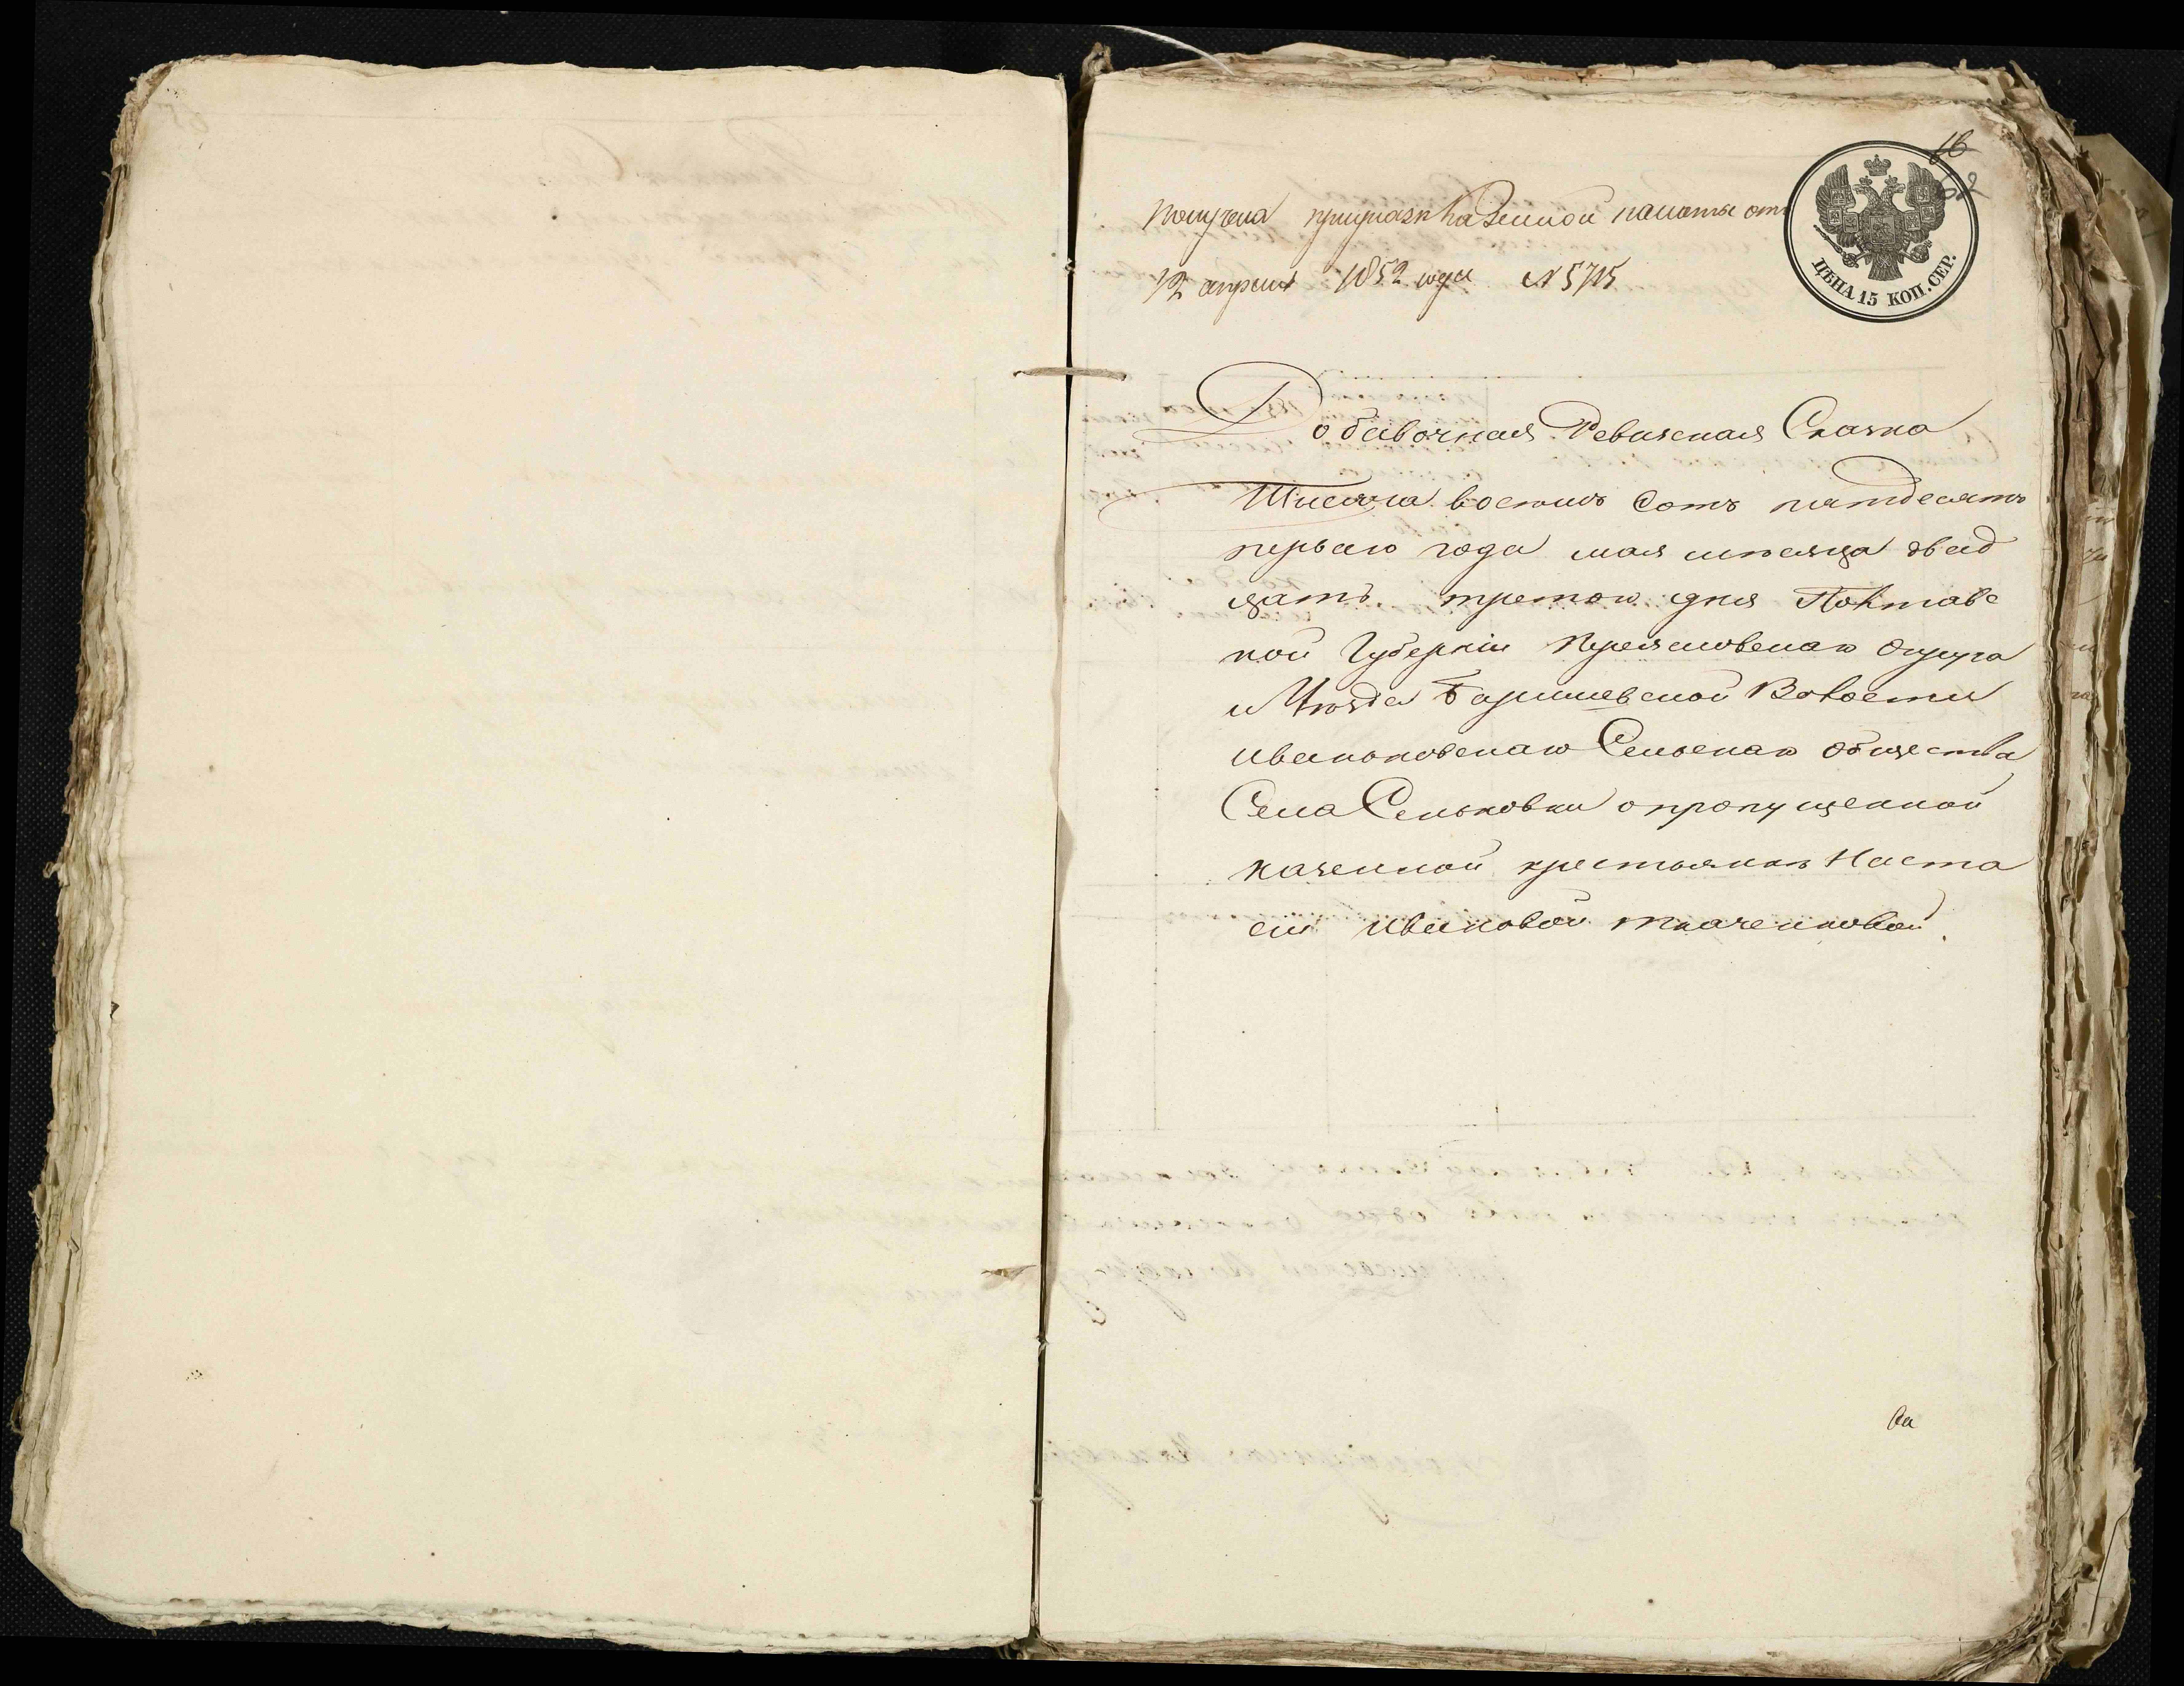 16
Получена приуказѣ Казенной палаты отъ
12 апреля 1852 года №5715
ЦѢНА 15 КОП. СЕР.
Добавочная Ревизская Сказка
Тысяча восемь Сотъ пятдесятъ
перваго года мая мѣсяца двад
цать третого дня Полтавс
кой Губерніи Переясловскаго Округа
и Уѣзда Баришевской Волости
Иваньковскаго Сельскаго Общества
Села Сеньковки о пропущенной
казенной крестьянкѣ Наста
сіи Ивановой Ткаченковой.